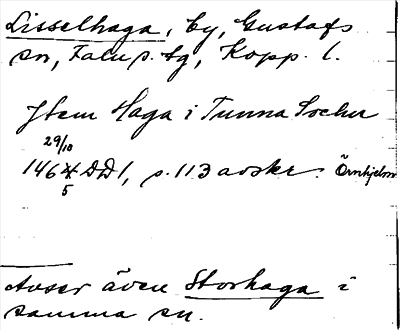 Lisselhaga, by, Gustafs
sn, Falu s. tg, Kopp. l.
Jtem Haga i Tunna Sochn
29/10
1464 DD1, s. 113 avskr. Örnhjelm
5
Avser även Storhaga i
samma sn.